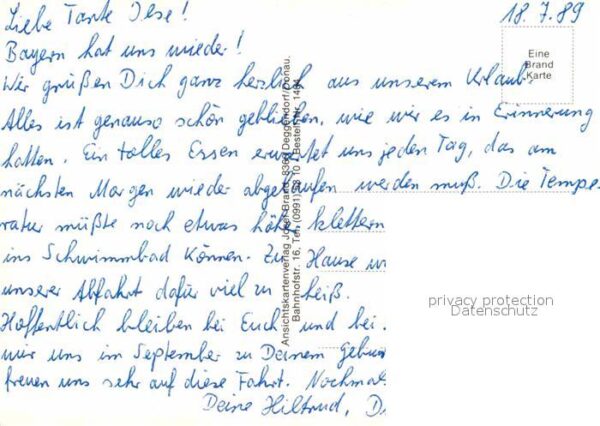 Liebe Tante Ilse! 18.7.89
Bayern hat uns wieder!
Wir grüßen Dich ganz herzlich aus unserem Urlaub.
Alles ist genauso schön geblieben, wie wir es in Erinnerung
hatten. Ein tolles Essen erwartet uns jeden Tag, das am
nächsten Morgen wieder abgelaufen werden muß. Die Tempe-
ratur müßte noch etwas höher klettern
ins Schwimmbad können. Zu Hause
unserer Abfahrt dafür viel zu heiß.
Hoffentlich bleiben bei Euch und bei
wir uns im September zu Deinem
freuen uns sehr auf diese Fahrt.
Deine Hiltrud,
Eine
Brand
Karte
Ansichtskartenverlag Josef Brand, 8360 Deggendorf/Donau.
Bahnhofstr. 16, Tel. (0991)
privacy protection
Datenschutz